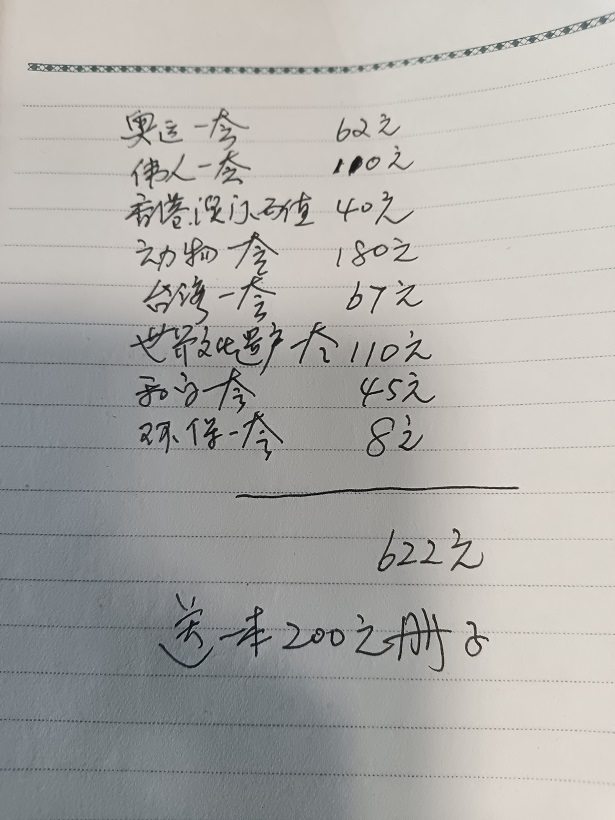 奥运一套 62元
伟人一套 110元
香港.澳门.面值 40元
动物一套 180元
台湾一套 67元
世界文化遗产一套 110元
和字一套 45元
环保一套 8元
622元
送一本200元册子